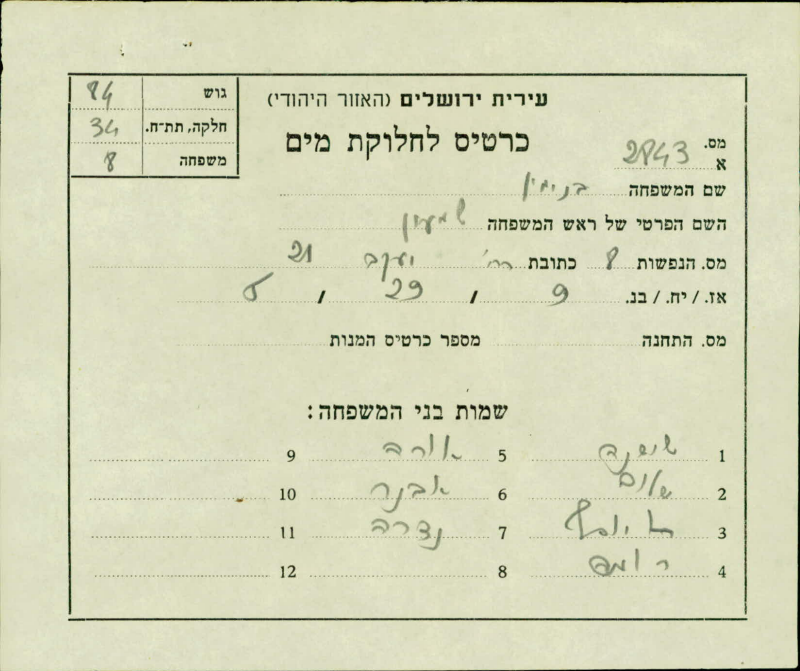 גוש 84
חלקה, תת-ח. 34
משפחה 8
עירית ירושלים (האזור היהודי)
כרטיס לחלוקת מים
מס. 2843
א
שם המשפחה בנימין
השם הפרטי של ראש המשפחה שמעון
מס. הנפשות 8 כתובת רח' יעקב 21
אז. / יח. / בנ. 9 / 29 / 5
מס. התחנה מספר כרטיס המנות
שמות בני המשפחה:
1 שושנה 5 אורה 9
2 שלום 6 אבנר 10
3 7 נדרה 11
4 8 12